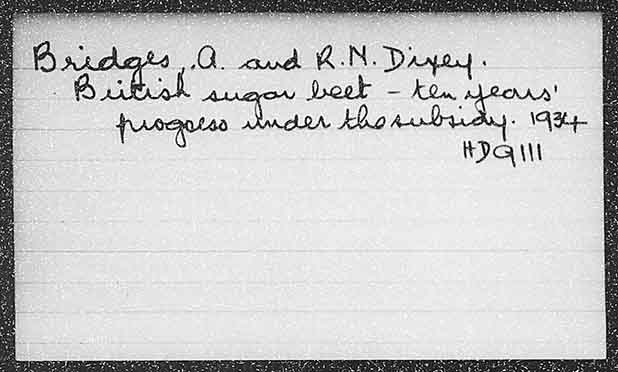 Bridges, A. and R.N. Dixey.
British sugar beet - ten years'
progress under the subsidy. 1934
HD9111